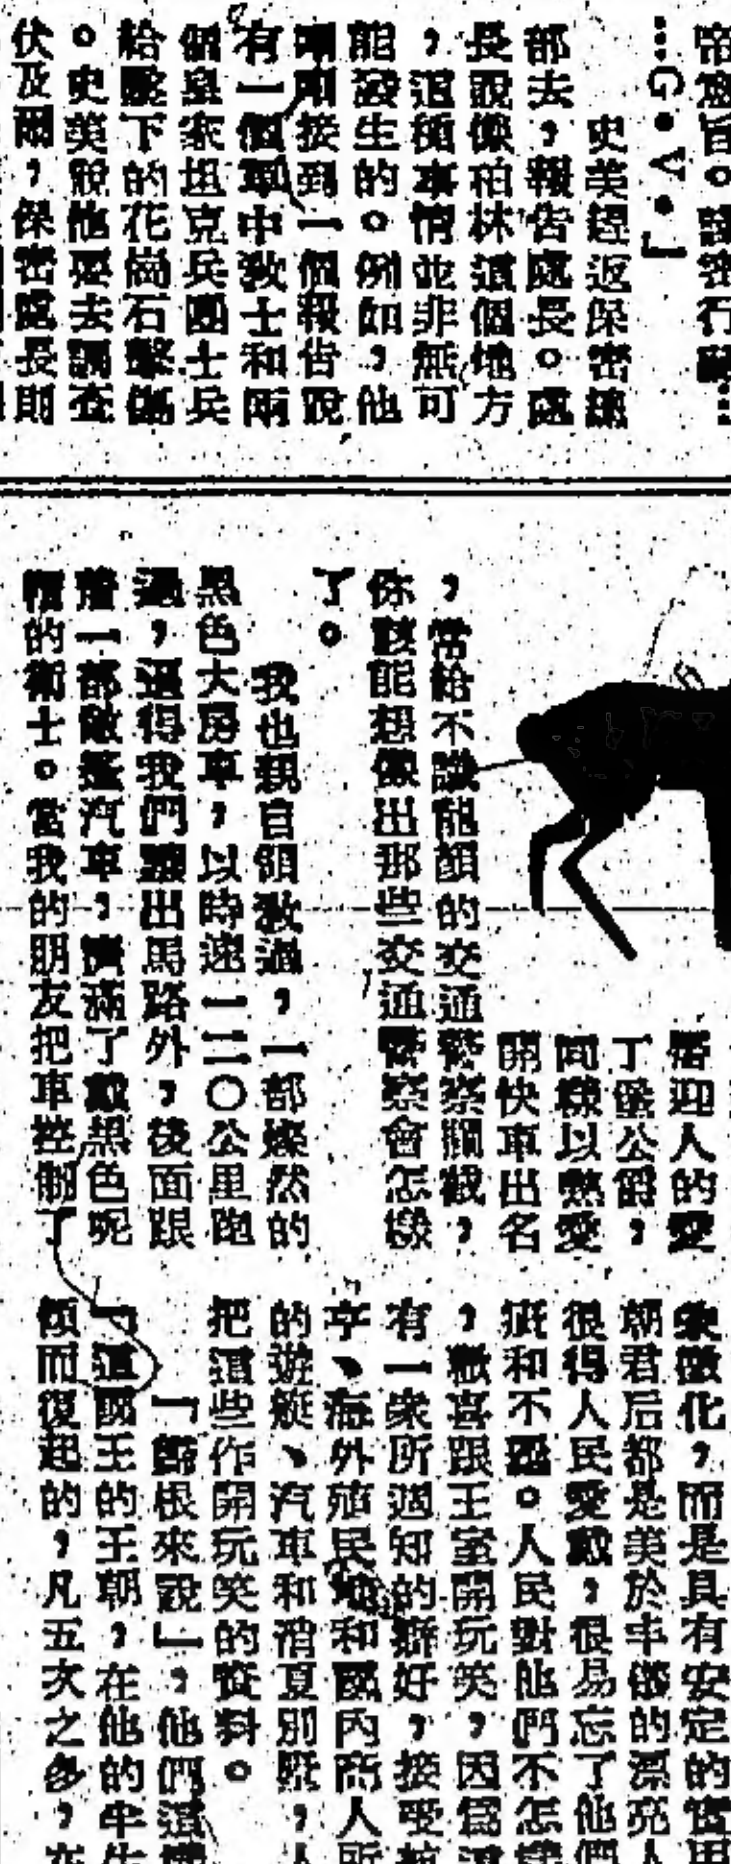 …G．V．」
史美經返保密總
部去，報告處長。處
長說像柏林這個地方
，這種事情並非無可
能發生的。例如，他
剛剛接到一個報告說
有一個軍中教士和兩
個皇家坦克兵團士兵
給墜下的花崗石擊傷
。史美說他要去調查
伏及爾，保密處長則
，常給不識龍顏的交通警察攔截，
你該能想像出那些交通警察會怎樣
了。
我也親自領教過，一部燦然的
黑色大房車，以時速一二〇公里跑
過，逼得我們讓出馬路外，後面跟
著一部敞篷汽車，擠滿了戴黑色呢
帽的衛士。當我的朋友把車控制了
迎人的愛
丁堡公爵，
同樣以熱愛
開快車出名
象徵化，而是具有安定的實用
朝君后都是美於丰儀的漂亮人
很得人民愛戴，很易忘了他們
疵和不及。人民對他們不怎樣
，歡喜跟王室開玩笑，因為這
有一眾所週知的癖好，接受
、海外殖民地和國內商人所
的遊艇、汽車和消夏別墅，人
把這些作開玩笑的資料。
「歸根來說」，他們這樣
「這國王的王朝，在他的半生
傾而復起的，凡五次之多，在